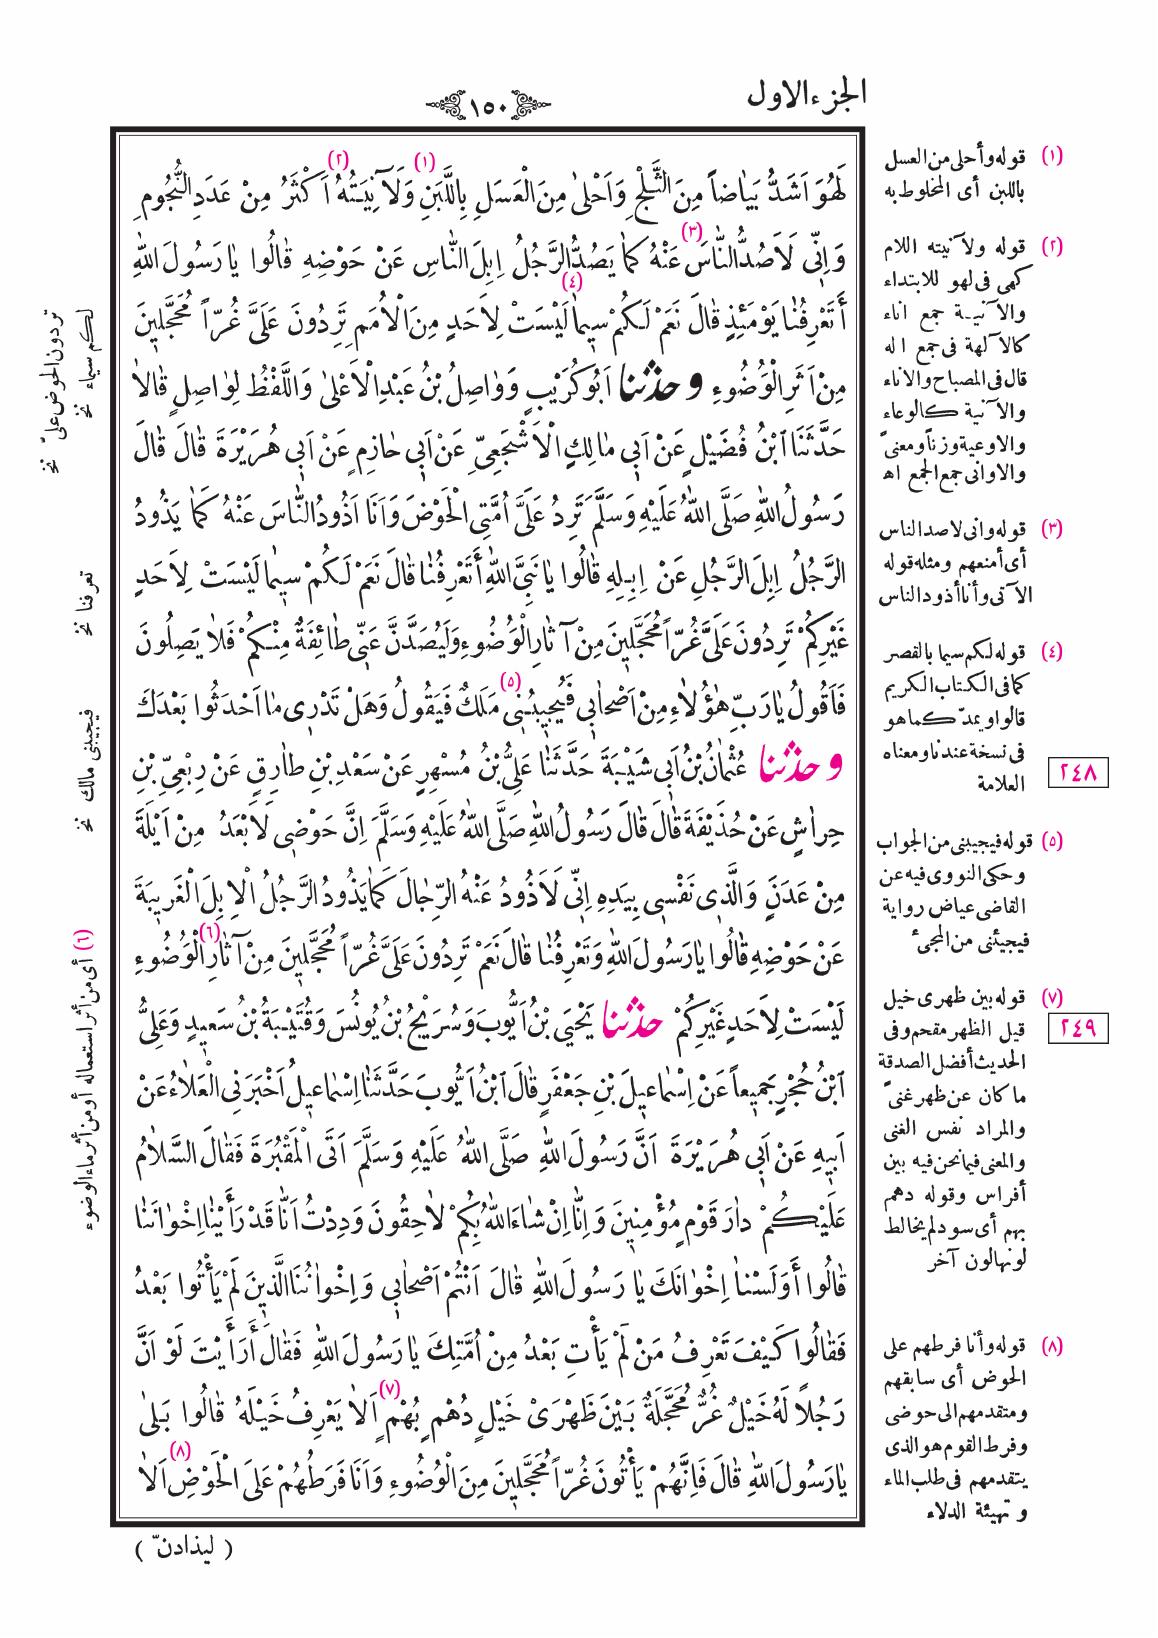 الجزء الاول
١٥٠
لَهُوَ اَشَدُّ بَيَاضاً مِنَ الثَّلْجِ وَاَحْلىٰ مِنَ الْعَسَلِ بِاللَّبَنِ (١) وَلَآنِيَتُهُ (٢) اَكْثَرُ مِنْ عَدَدِ النُّجُومِ
وَاِنِّى لَاَصُدُّ النَّاسَ (٣) عَنْهُ كَمَا يَصُدُّ الرَّجُلُ اِبِلَ النَّاسِ عَنْ حَوْضِهِ قَالُوا يَا رَسُولَ اللهِ
أَتَعْرِفُنَا يَوْمَئِذٍ قَالَ نَعَمْ لَكُمْ سِيمَا (٤) لَيْسَتْ لِاَحَدٍ مِنَ الْاُمَمِ تَرِدُونَ عَلَىَّ غُرّاً مُحَجَّلِينَ
مِنْ اَثَرِ الْوُضُوءِ و حدثنا اَبُو كُرَيْبٍ وَوَاصِلُ بْنُ عَبْدِ الْاَعْلىٰ وَاللَّفْظُ لِوَاصِلٍ قَالَا
حَدَّثَنَا ابْنُ فُضَيْلٍ عَنْ اَبِى مَالِكٍ الْاَشْجَعِىِّ عَنْ اَبِى حَازِمٍ عَنْ اَبِى هُرَيْرَةَ قَالَ قَالَ
رَسُولُ اللهِ صَلَّى اللهُ عَلَيْهِ وَسَلَّمَ تَرِدُ عَلَىَّ اُمَّتِى الْحَوْضَ وَاَنَا اَذُودُ النَّاسَ عَنْهُ كَمَا يَذُودُ
الرَّجُلُ اِبِلَ الرَّجُلِ عَنْ اِبِلِهِ قَالُوا يَا نَبِىَّ اللهِ أَتَعْرِفُنَا قَالَ نَعَمْ لَكُمْ سِيمَا لَيْسَتْ لِاَحَدٍ
غَيْرِكُمْ تَرِدُونَ عَلَىَّ غُرّاً مُحَجَّلِينَ مِنْ آثَارِ الْوُضُوءِ وَلَيُصَدَّنَّ عَنِّى طَائِفَةٌ مِنْكُمْ فَلَا يَصِلُونَ
فَاَقُولُ يَا رَبِّ هٰؤُلَاءِ مِنْ اَصْحَابِى فَيُجِيبُنِى (٥) مَلَكٌ فَيَقُولُ وَهَلْ تَدْرِى مَا اَحْدَثُوا بَعْدَكَ
و حدثنا عُثْمَانُ بْنُ اَبِى شَيْبَةَ حَدَّثَنَا عَلِىُّ بْنُ مُسْهِرٍ عَنْ سَعْدِ بْنِ طَارِقٍ عَنْ رِبْعِىِّ بْنِ
حِرَاشٍ عَنْ حُذَيْفَةَ قَالَ قَالَ رَسُولُ اللهِ صَلَّى اللهُ عَلَيْهِ وَسَلَّمَ اِنَّ حَوْضِى لَاَبْعَدُ مِنْ اَيْلَةَ
مِنْ عَدَنٍ وَالَّذِى نَفْسِى بِيَدِهِ اِنِّى لَاَذُودُ عَنْهُ الرِّجَالَ كَمَا يَذُودُ الرَّجُلُ الْاِبِلَ الْغَرِيبَةَ
عَنْ حَوْضِهِ قَالُوا يَا رَسُولَ اللهِ وَتَعْرِفُنَا قَالَ نَعَمْ تَرِدُونَ عَلَىَّ غُرّاً مُحَجَّلِينَ مِنْ آثَارِ (٦) الْوُضُوءِ
لَيْسَتْ لِاَحَدٍ غَيْرِكُمْ حدثنا يَحْيَى بْنُ اَيُّوبَ وَسُرَيْجُ بْنُ يُونُسَ وَقُتَيْبَةُ بْنُ سَعِيدٍ وَعَلِىُّ
ابْنُ حُجْرٍ جَمِيعاً عَنْ اِسْمَاعِيلَ بْنِ جَعْفَرٍ قَالَ ابْنُ اَيُّوبَ حَدَّثَنَا اِسْمَاعِيلُ اَخْبَرَنِى الْعَلَاءُ عَنْ
اَبِيهِ عَنْ اَبِى هُرَيْرَةَ اَنَّ رَسُولَ اللهِ صَلَّى اللهُ عَلَيْهِ وَسَلَّمَ اَتَى الْمَقْبُرَةَ فَقَالَ السَّلَامُ
عَلَيْكُمْ دَارَ قَوْمٍ مُؤْمِنِينَ وَاِنَّا اِنْ شَاءَ اللهُ بِكُمْ لَاحِقُونَ وَدِدْتُ اَنَّا قَدْ رَأَيْنَا اِخْوَانَنَا
قَالُوا أَوَلَسْنَا اِخْوَانَكَ يَا رَسُولَ اللهِ قَالَ اَنْتُمْ اَصْحَابِى وَاِخْوَانُنَا الَّذِينَ لَمْ يَأْتُوا بَعْدُ
فَقَالُوا كَيْفَ تَعْرِفُ مَنْ لَمْ يَأْتِ بَعْدُ مِنْ اُمَّتِكَ يَا رَسُولَ اللهِ فَقَالَ أَرَأَيْتَ لَوْ اَنَّ
رَجُلاً لَهُ خَيْلٌ غُرٌّ مُحَجَّلَةٌ بَيْنَ ظَهْرَىْ خَيْلٍ دُهْمٍ بُهْمٍ (٧) اَلَا يَعْرِفُ خَيْلَهُ قَالُوا بَلىٰ
يَا رَسُولَ اللهِ قَالَ فَاِنَّهُمْ يَأْتُونَ غُرّاً مُحَجَّلِينَ مِنَ الْوُضُوءِ وَاَنَا فَرَطُهُمْ عَلَى الْحَوْضِ (٨) اَلَا
( ليذادنّ )
(١) قوله وأحلى من العسل
باللبن أى المخلوط به
(٢) قوله ولآنيته اللام
كهى فى لهو للابتداء
والآنيـة جمع اناء
كالآلهة فى جمع اله
قال فى المصباح والاناء
والآنية كالوعاء
والاوعية وزناً ومعنىً
والاوانى جمع الجمع اه
(٣) قوله وانى لاصد الناس
أى أمنعهم ومثله قوله
الآتى وأنا أذود الناس
(٤) قوله لكم سيما بالقصر
كما فى الكتاب الكريم
قالوا ويمدّ كما هو
فى نسخة عندنا ومعناه
العلامة
٢٤٨
(٥) قوله فيجيبنى من الجواب
وحكى النووى فيه عن
القاضى عياض رواية
فيجيئنى من المجىء
(٧) قوله بين ظهرى خيل
قيل الظهر مقحم وفى
الحديث أفضل الصدقة
ما كان عن ظهر غنىً
والمراد نفس الغنى
والمعنى فيما نحن فيه بين
أفراس وقوله دهم
بهم أى سود لم يخالط
لونها لون آخر
٢٤٩
(٨) قوله وأنا فرطهم على
الحوض أى سابقهم
ومتقدمهم الى حوضى
وفرط القوم هو الذى
يتقدمهم فى طلب الماء
و تهيئة الدلاء
لكم سيماء نخ
تردون الحوض علىّ نخ
تعرفنا نخ
فيجيبنى مالك نخ
(٦) أى من أثر استعماله أو من أثر ماء الوضوء